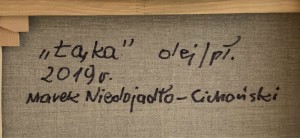 „Łąka” olej/pł.
2019 r.
Marek Niedojadło-Cichoński